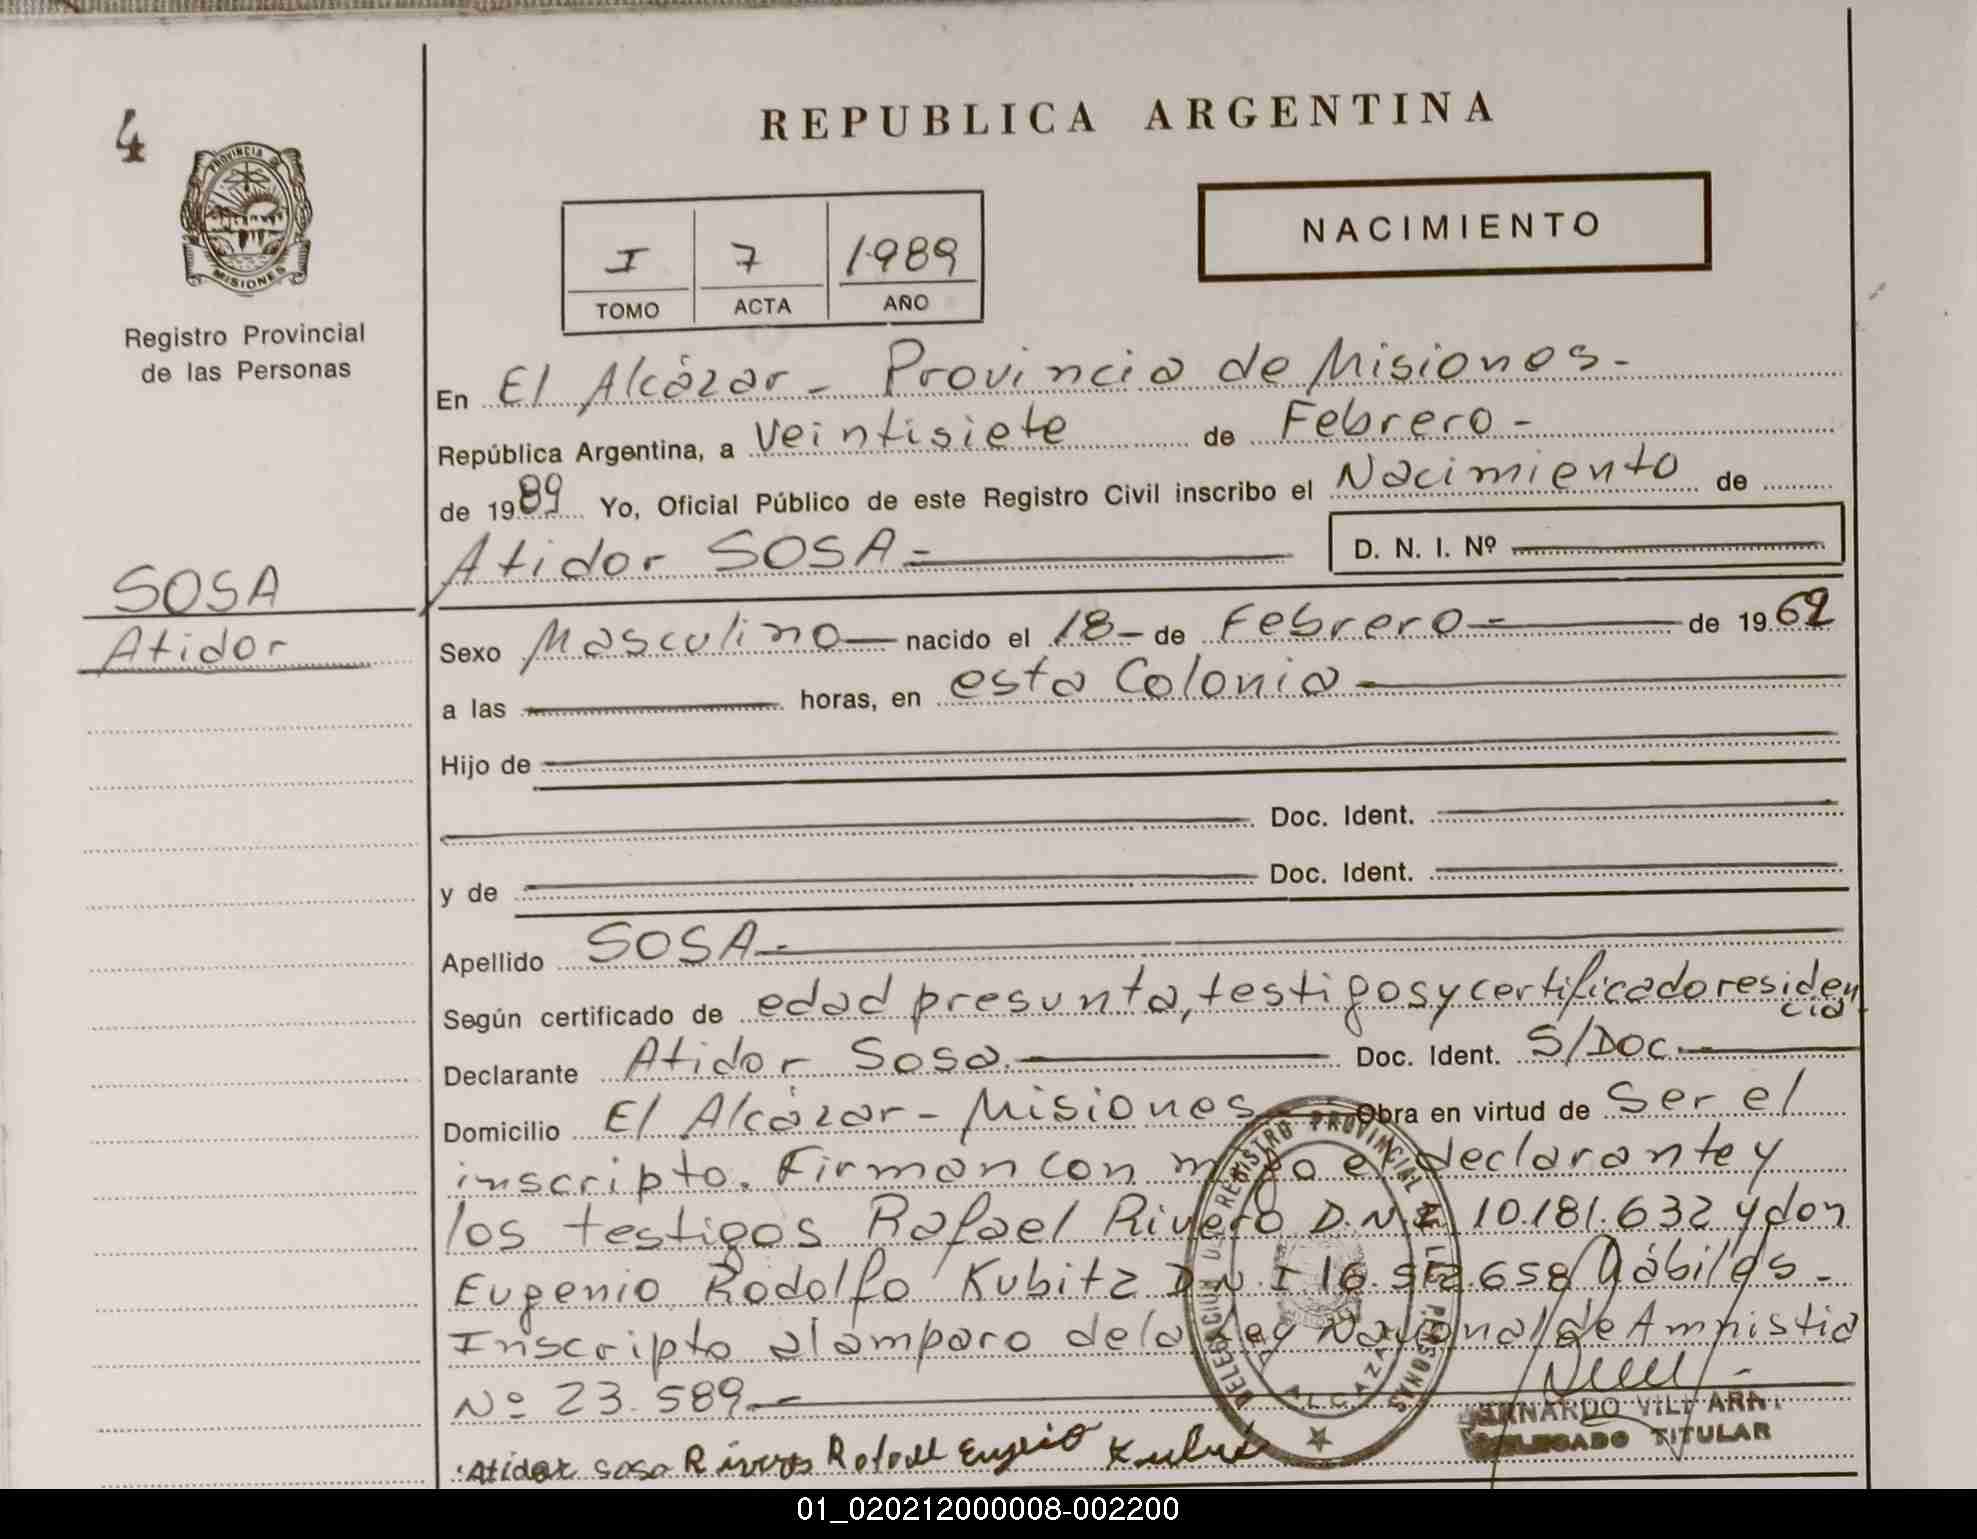 4
REPUBLICA ARGENTINA
PROVINCIA DE
MISIONES
Registro Provincial
de las Personas
I 7 1989
TOMO ACTA AÑO
NACIMIENTO
En El Alcázar - Provincia de Misiones -
República Argentina, a Veintisiete de Febrero -
de 1989 Yo, Oficial Público de este Registro Civil inscribo el Nacimiento de
Atidor SOSA - D. N. I. Nº
SOSA
Atidor
Sexo Masculino nacido el 18 - de Febrero - de 1962
a las horas, en esta Colonia
Hijo de
Doc. Ident.
y de Doc. Ident.
Apellido SOSA -
Según certificado de edad presunta, testigos y certificado residen
cia -
Declarante Atidor Sosa. Doc. Ident. S/Doc.
Domicilio El Alcázar - Misiones Obra en virtud de Ser el
inscripto. Firman con migo el declarante y
los testigos Rafael Rivero D.N.I 10.181.632 y don
Eugenio Rodolfo Kubitz D.N.I 16.512.658 Hábiles -
Inscripto al amparo de la Ley Nacional de Amnistia
Nº 23.589 -
DELEGACION DE REGISTRO PROVINCIAL DE LAS PERSONAS
ALCAZAR
DELEGADO TITULAR
Atidor Sosa Rivero Rafael Eugenio
01_020212000008-002200